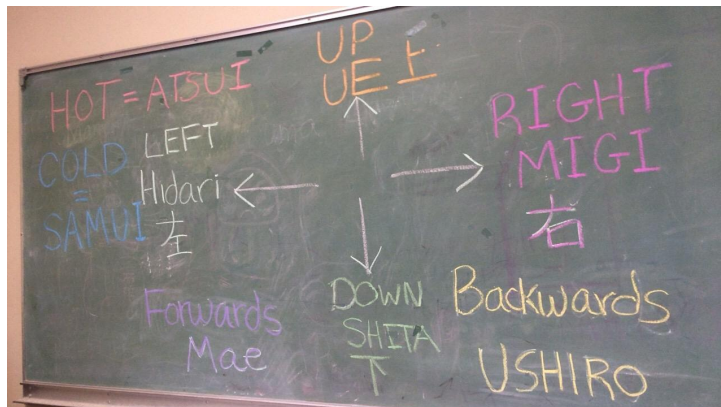 UP
UE上
HOT = ATSUI
COLD
=
SAMUI
LEFT
Hidari
左
RIGHT
MIGI
右
Forwards
Mae
DOWN
SHITA
下
Backwards
USHIRO